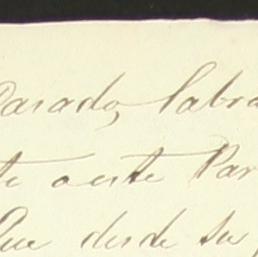 Parado, labra
te a este Par
Que desde su